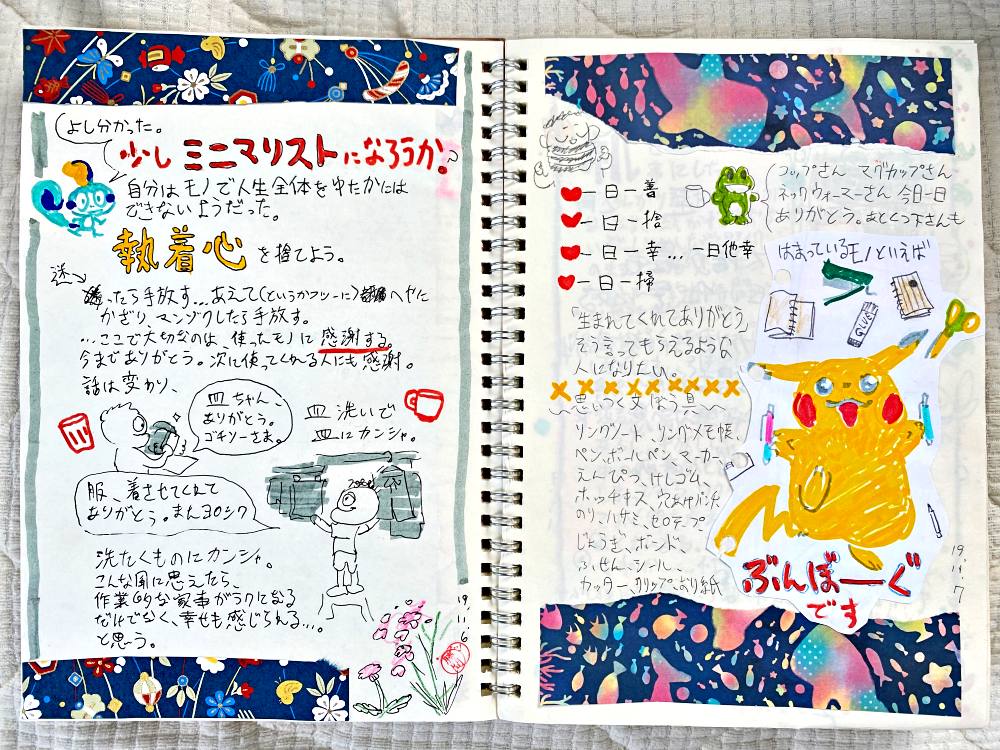 よし分かった。
少しミニマリストになろうか?
自分はモノで人生全体をゆたかには
できないようだった。
執着心を捨てよう。
迷
ったら手放す…あえて(というかフツーに)ヘヤに
かざり、マンゾクしたら手放す。
…ここで大切なのは、使ったモノに感謝する。
今までありがとう。次に使ってくれる人にも感謝。
話は変わり、
皿ちゃん、
ありがとう。
ゴチソーさま。
皿洗いで
皿にカンシャ。
服、着させてくれて
ありがとう。また30シク
洗たくものにカンシャ。
こんな風に思えたら、
作業的な家事がラクになる
だけでなく、幸せも感じられる…。
と思う。
19
11
6
一日一善
一日一捨
一日一幸…一日他幸
一日一掃
コップさん マグカップさん
ネックウォーマーさん 今日一日
ありがとう。あとくつ下さんも
はまっているモノといえば
GLUE
「生まれてくれてありがとう」
そう言ってもらえるような
人になりたい。
思いつく文ぼう具
リングノート、リングメモ帳、
ペン、ボールペン、マーカー
えんぴつ、けしゴム、
ホッチキス、穴あけパンチ
のり、ハサミ、セロテープ
じょうぎ、ボンド、
ふせん、シール、
カッター、クリップ、おり紙
ぶんぼーぐ
です
19
11
7